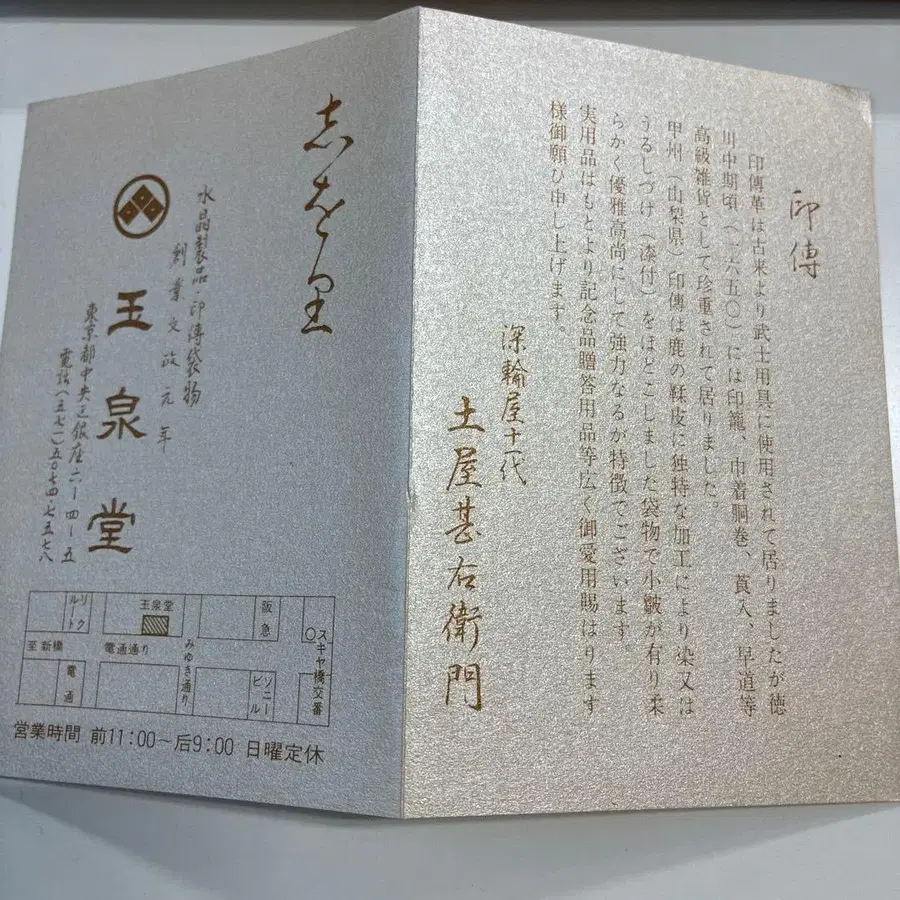 印傳
印傳革は古来より武士用具に使用されて居りましたが徳
川中期頃（一六五〇）には印籠、巾着胴巻、莨入、早道等
高級雑貨として珍重されて居りました。
甲州（山梨県）印傳は鹿の鞣皮に独特な加工により染又は
うるしづけ（漆付）をほどこしました袋物で小皺が有り柔
らかく優雅高尚にして強力なるが特徴でございます。
実用品はもとより記念品贈答用品等広く御愛用賜はります
様御願ひ申し上げます。
深輪屋十一代
土屋甚右衛門
志を里
水晶製品・印傳袋物
創業文政元年
玉泉堂
東京都中央区銀座六ー四ー五
電話（五七一）五〇七四・七五七八
リトク
ルト
玉泉堂
阪急
スキヤ橋交番
至新橋
電通通り
みゆき通り
電通
ソニービル
営業時間 前11:00～后9:00 日曜定休